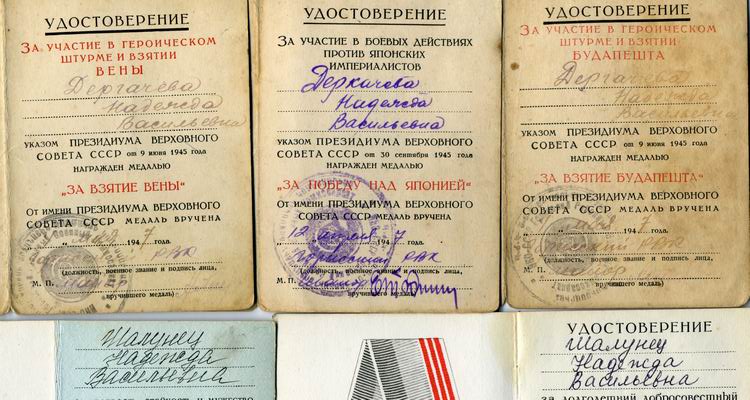 УДОСТОВЕРЕНИЕ
ЗА УЧАСТИЕ В ГЕРОИЧЕСКОМ
ШТУРМЕ И ВЗЯТИИ
ВЕНЫ
Дергачева
Надежда
Васильевна
УКАЗОМ ПРЕЗИДИУМА ВЕРХОВНОГО
СОВЕТА СССР от 9 июня 1945 года
НАГРАЖДЕН МЕДАЛЬЮ
„ЗА ВЗЯТИЕ ВЕНЫ“
От имени ПРЕЗИДИУМА ВЕРХОВНОГО
СОВЕТА СССР МЕДАЛЬ ВРУЧЕНА
194 7 года.
(должность, военное звание и подпись лица,
М. П. майор
вручившего медаль)
УДОСТОВЕРЕНИЕ
ЗА УЧАСТИЕ В БОЕВЫХ ДЕЙСТВИЯХ
ПРОТИВ ЯПОНСКИХ
ИМПЕРИАЛИСТОВ
Деркачева
Надежда
Васильевна
УКАЗОМ ПРЕЗИДИУМА ВЕРХОВНОГО
СОВЕТА СССР от 30 сентября 1945 года
НАГРАЖДЕН МЕДАЛЬЮ
„ЗА ПОБЕДУ НАД ЯПОНИЕЙ“
От имени ПРЕЗИДИУМА ВЕРХОВНОГО
СОВЕТА СССР МЕДАЛЬ ВРУЧЕНА
12 апреля 194 7 года.
РВК
(должность, военное звание и подпись лица,
М. П.
вручившего медаль)
УДОСТОВЕРЕНИЕ
ЗА УЧАСТИЕ В ГЕРОИЧЕСКОМ
ШТУРМЕ И ВЗЯТИИ
БУДАПЕШТА
Дергачева
Надежда
Васильевна
УКАЗОМ ПРЕЗИДИУМА ВЕРХОВНОГО
СОВЕТА СССР от 9 июня 1945 года
НАГРАЖДЕН МЕДАЛЬЮ
„ЗА ВЗЯТИЕ БУДАПЕШТА“
От имени ПРЕЗИДИУМА ВЕРХОВНОГО
СОВЕТА СССР МЕДАЛЬ ВРУЧЕНА
194 года.
РВК
(должность, военное звание и подпись лица,
М. П.
вручившего медаль)
Шалунец
Надежда
Васильевна
УДОСТОВЕРЕНИЕ
Шалунец
Надежда
Васильевна
за долголетний добросовестный